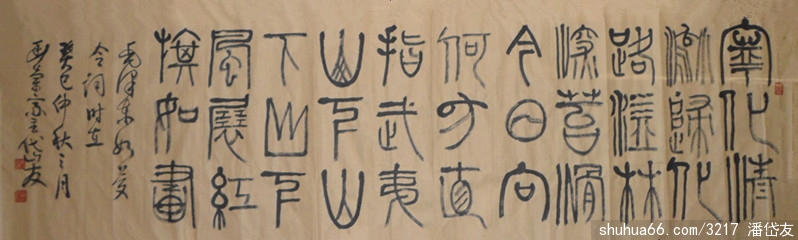 寧化清
流歸化
路隘林
深苔滑
今日向
何方直
指武夷
山下山
下山下
風展紅
旗如畫
毛澤東如夢
令詞時在
癸巳仲秋之月
岱友
shuhua66.com/3217 潘岱友